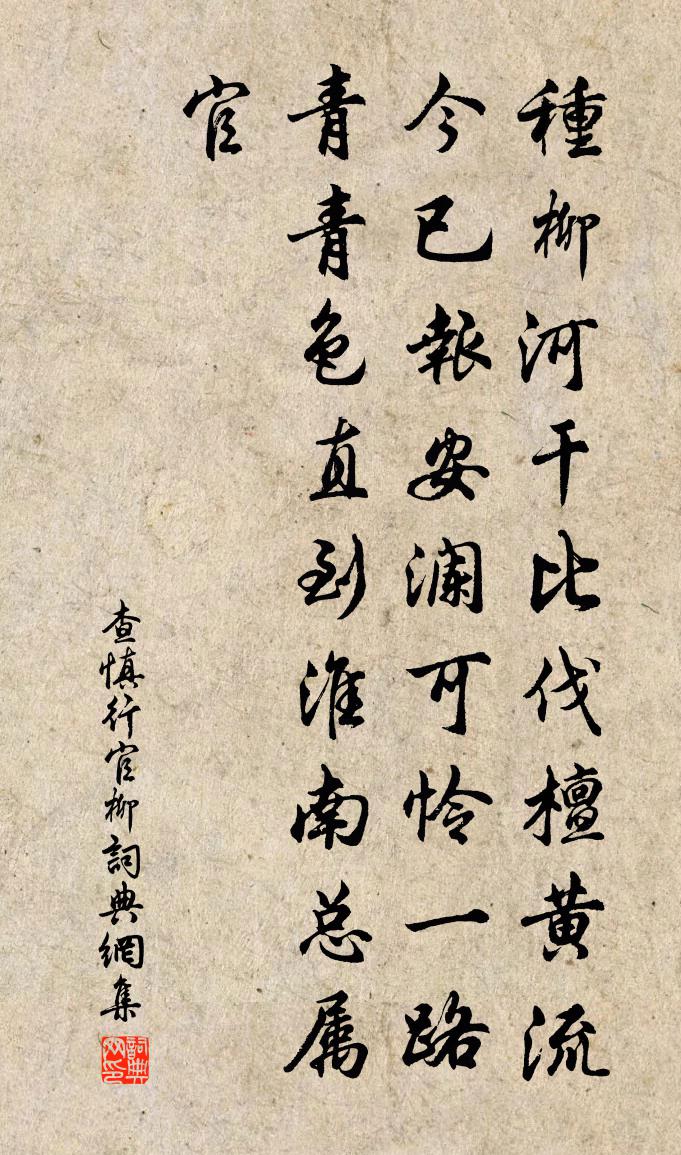 種柳河干比伐檀黄流
今已報安瀾可怜一路
青青色直到淮南总属
官
查慎行官柳詞典網集
詞典网印